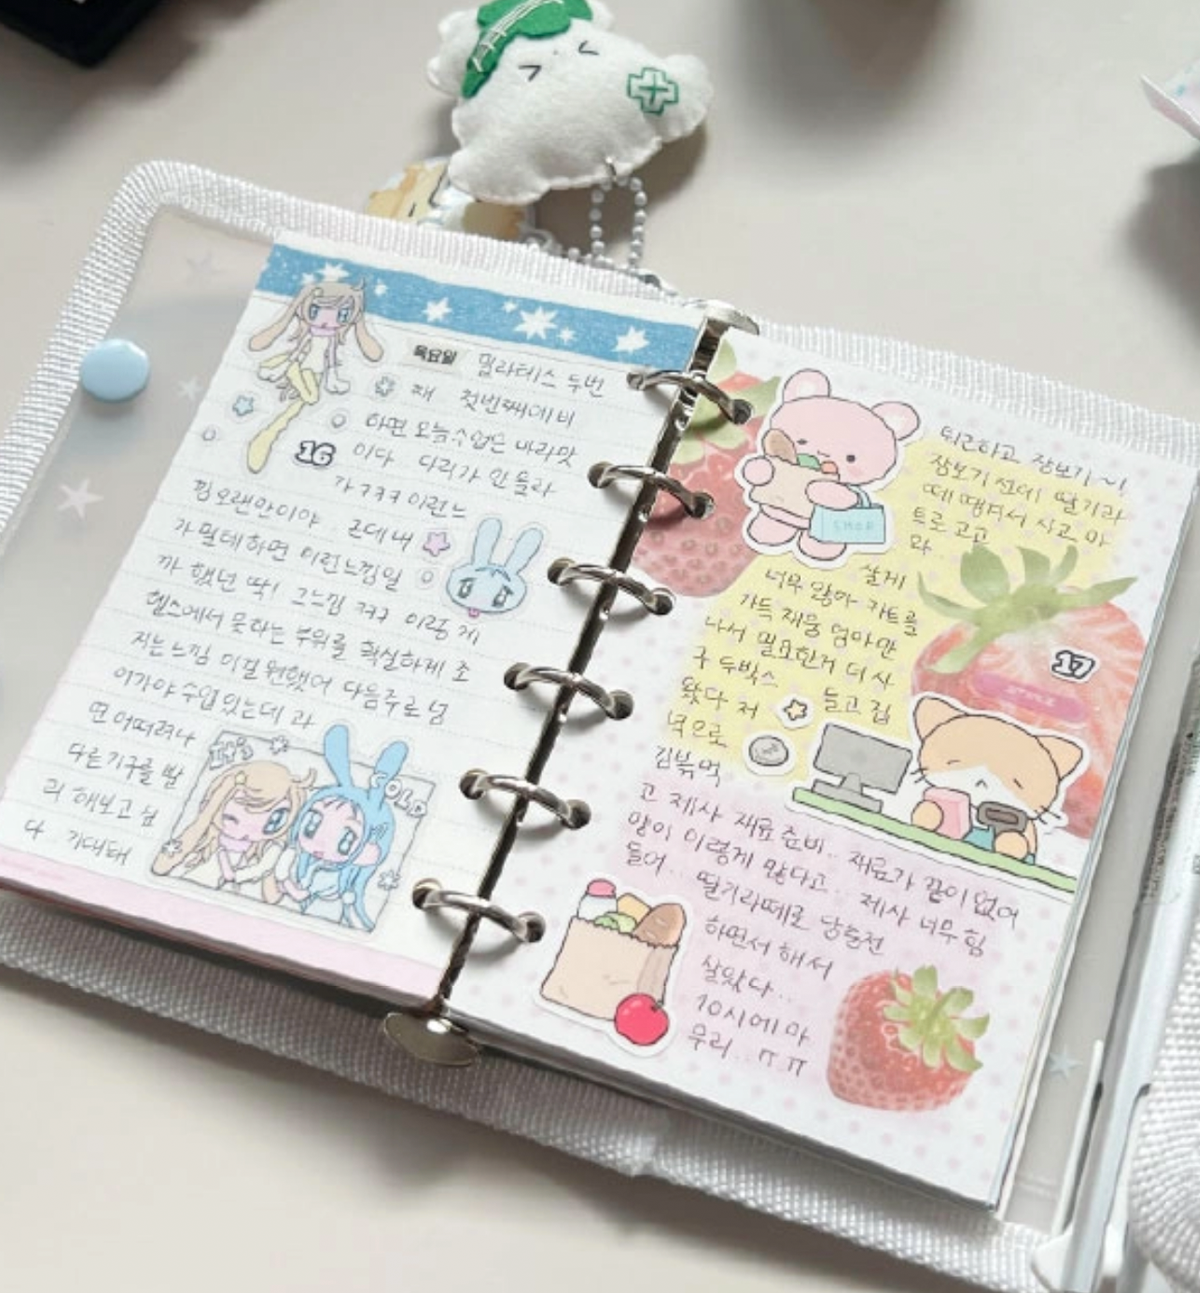 목요일 필라테스 두번
째 첫번째에 비
하면 오늘수업은 마라맛
16 이다 다리가 안 올라
가 ㅋㅋㅋ 이런 느
낌 오랜만이야. 근데 내
가 필테하면 이런느낌일
까 했던 딱! 그느낌 ㅋㅋㅋ 이렇게
헬스에서 못하는 부위를 확실하게 조
지는느낌 이걸 원했어 다음주로 넘
어가야 수업있는데 과
연 어떠려나
다른기구를 빨
리 해보고 싶
다 기대돼
SOLD
퇴근하고 장보기~!
장보기 전에 딸기라
떼 땡겨서 사고 마
트로 고고
SHOP
와 살게
너무 많아 카트를
가득 채움 엄마만
나서 필요한거 더 사
17
구 두박스 들고 집
왔다 저
녁으로
김볶먹
고 제사 재료준비.. 재료가 끝이 없어
양이 이렇게 많다고.. 제사 너무 힘
들어.. 딸기라떼로 당충전
하면서 해서
살았다..
10시에 마
무리.. ㅠㅠ